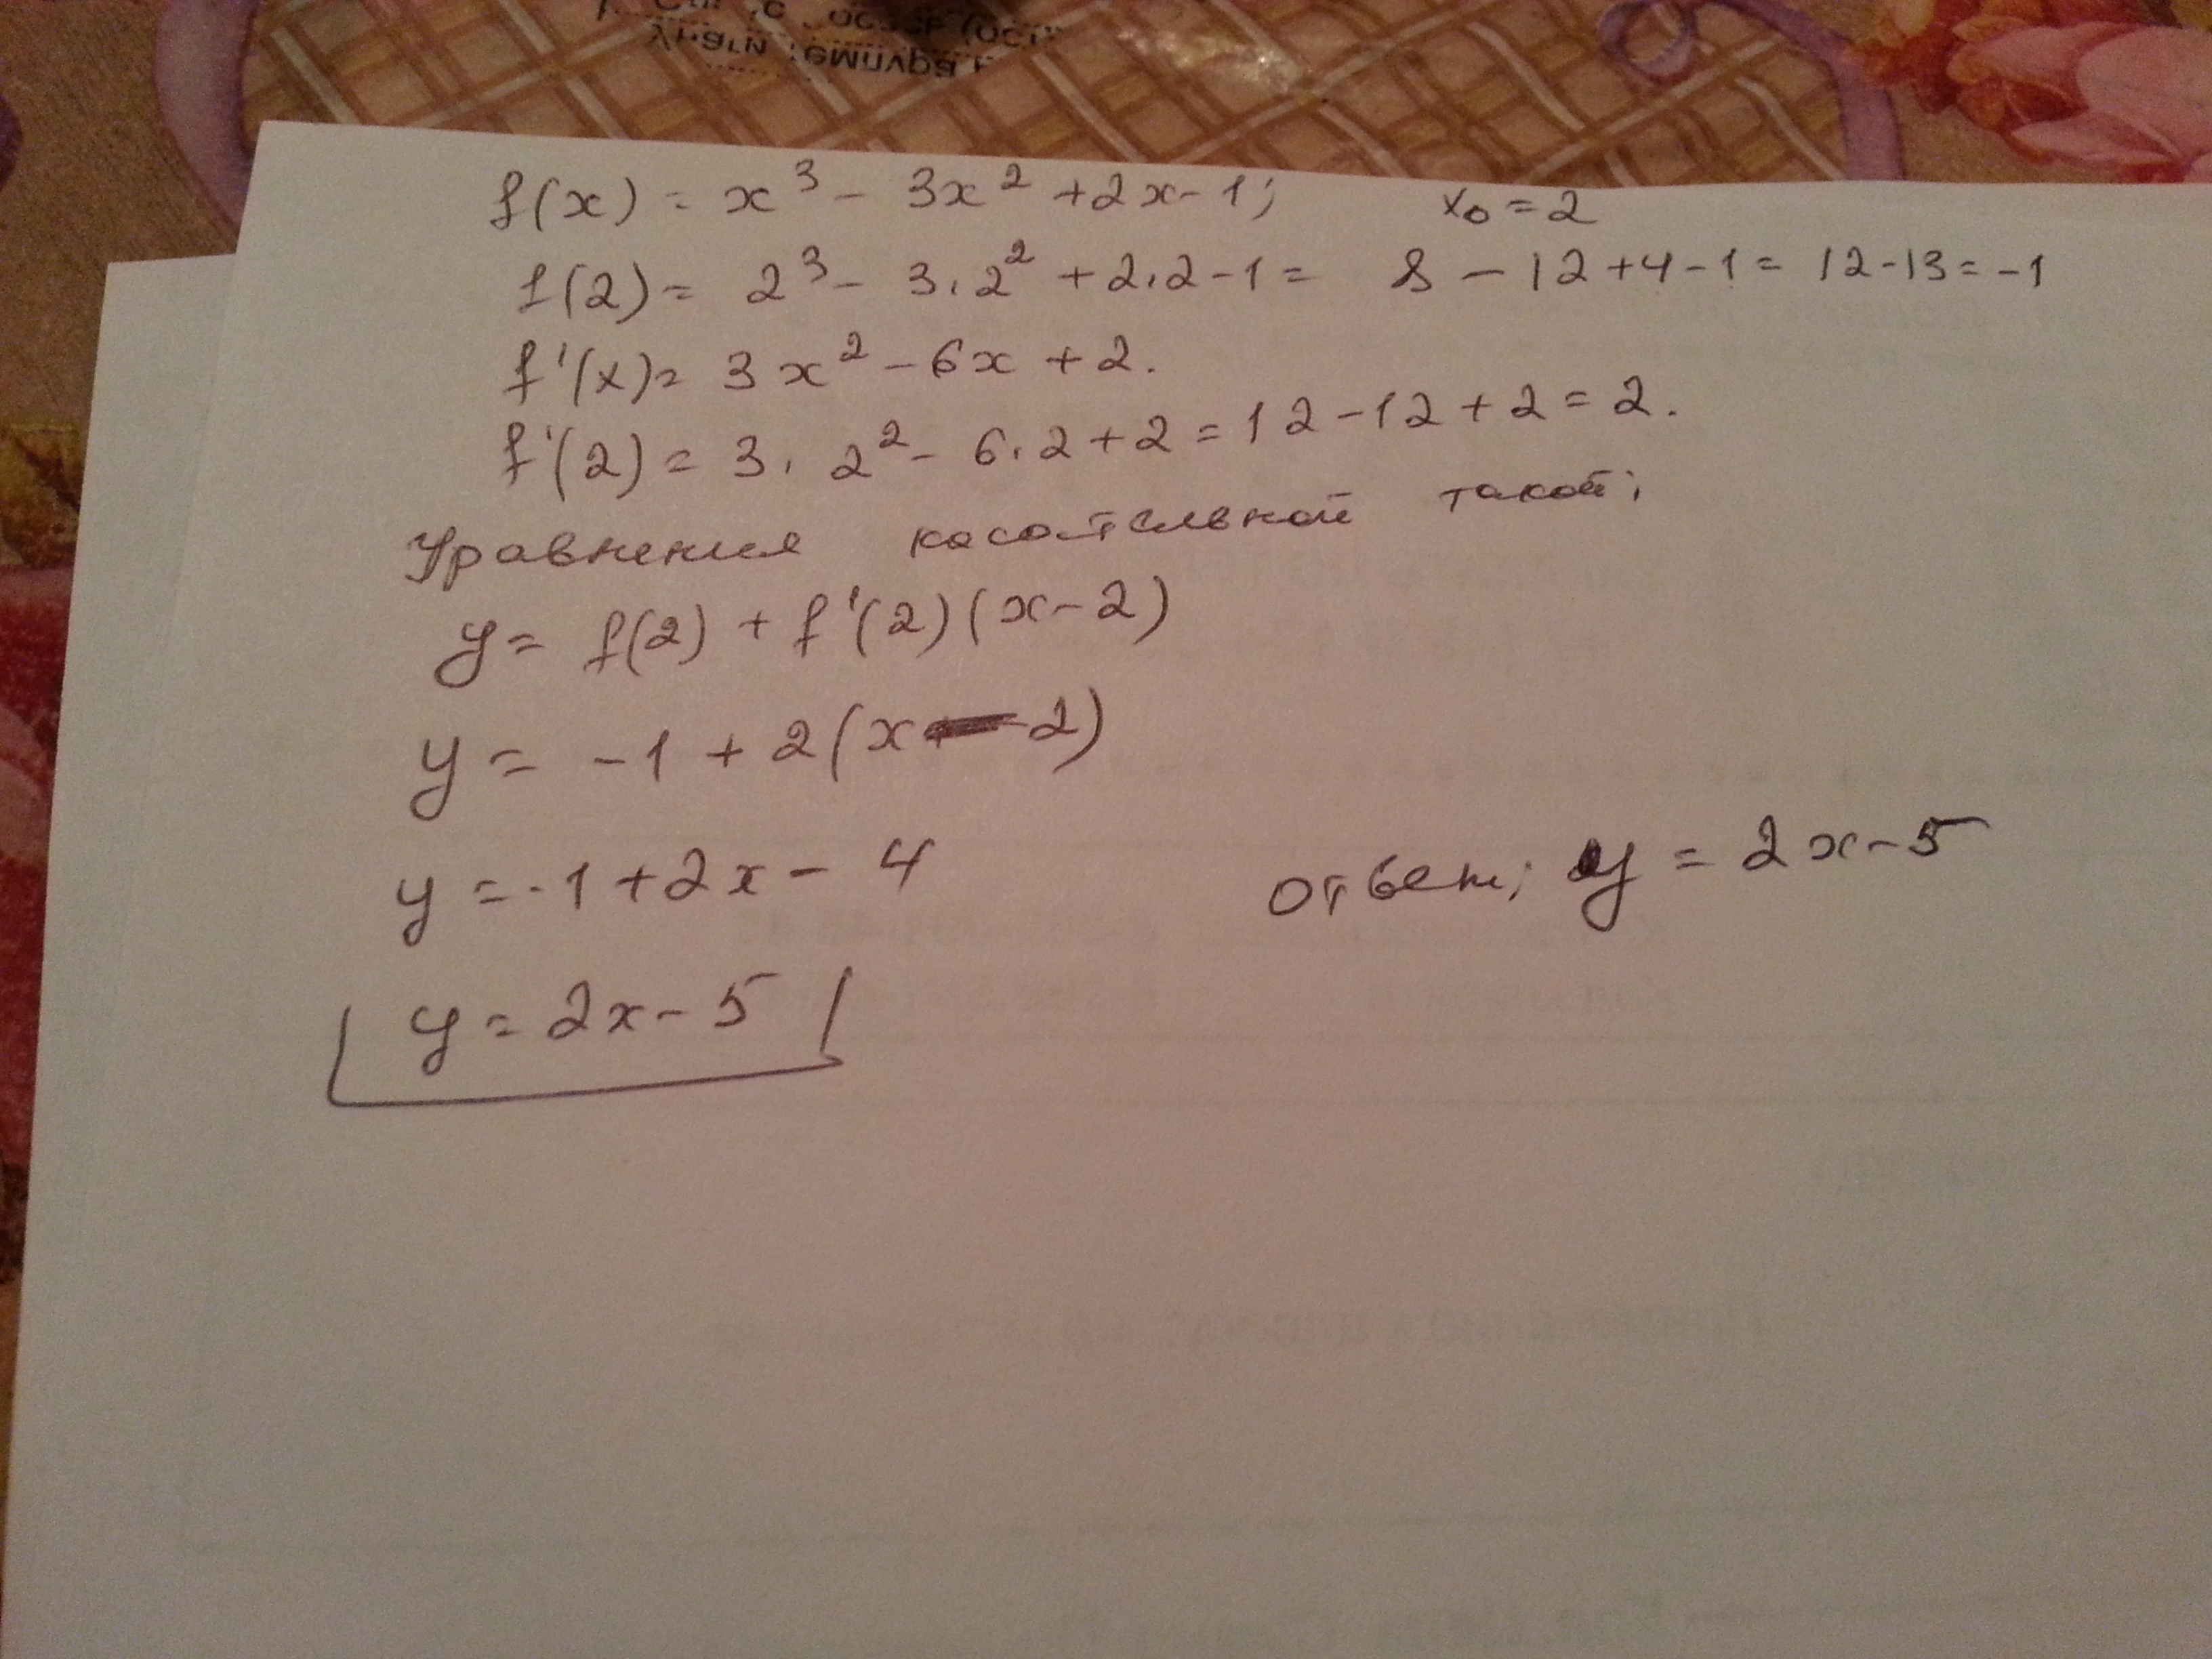 f(x) = x³ - 3x² + 2x - 1; x₀ = 2
f(2) = 2³ - 3·2² + 2·2 - 1 = 8 - 12 + 4 - 1 = 12 - 13 = -1
f'(x) = 3x² - 6x + 2.
f'(2) = 3·2² - 6·2 + 2 = 12 - 12 + 2 = 2.
Уравнения касательной такой:
y = f(2) + f'(2)(x - 2)
y = -1 + 2(x - 2)
y = -1 + 2x - 4
ответ: y = 2x - 5
y = 2x - 5